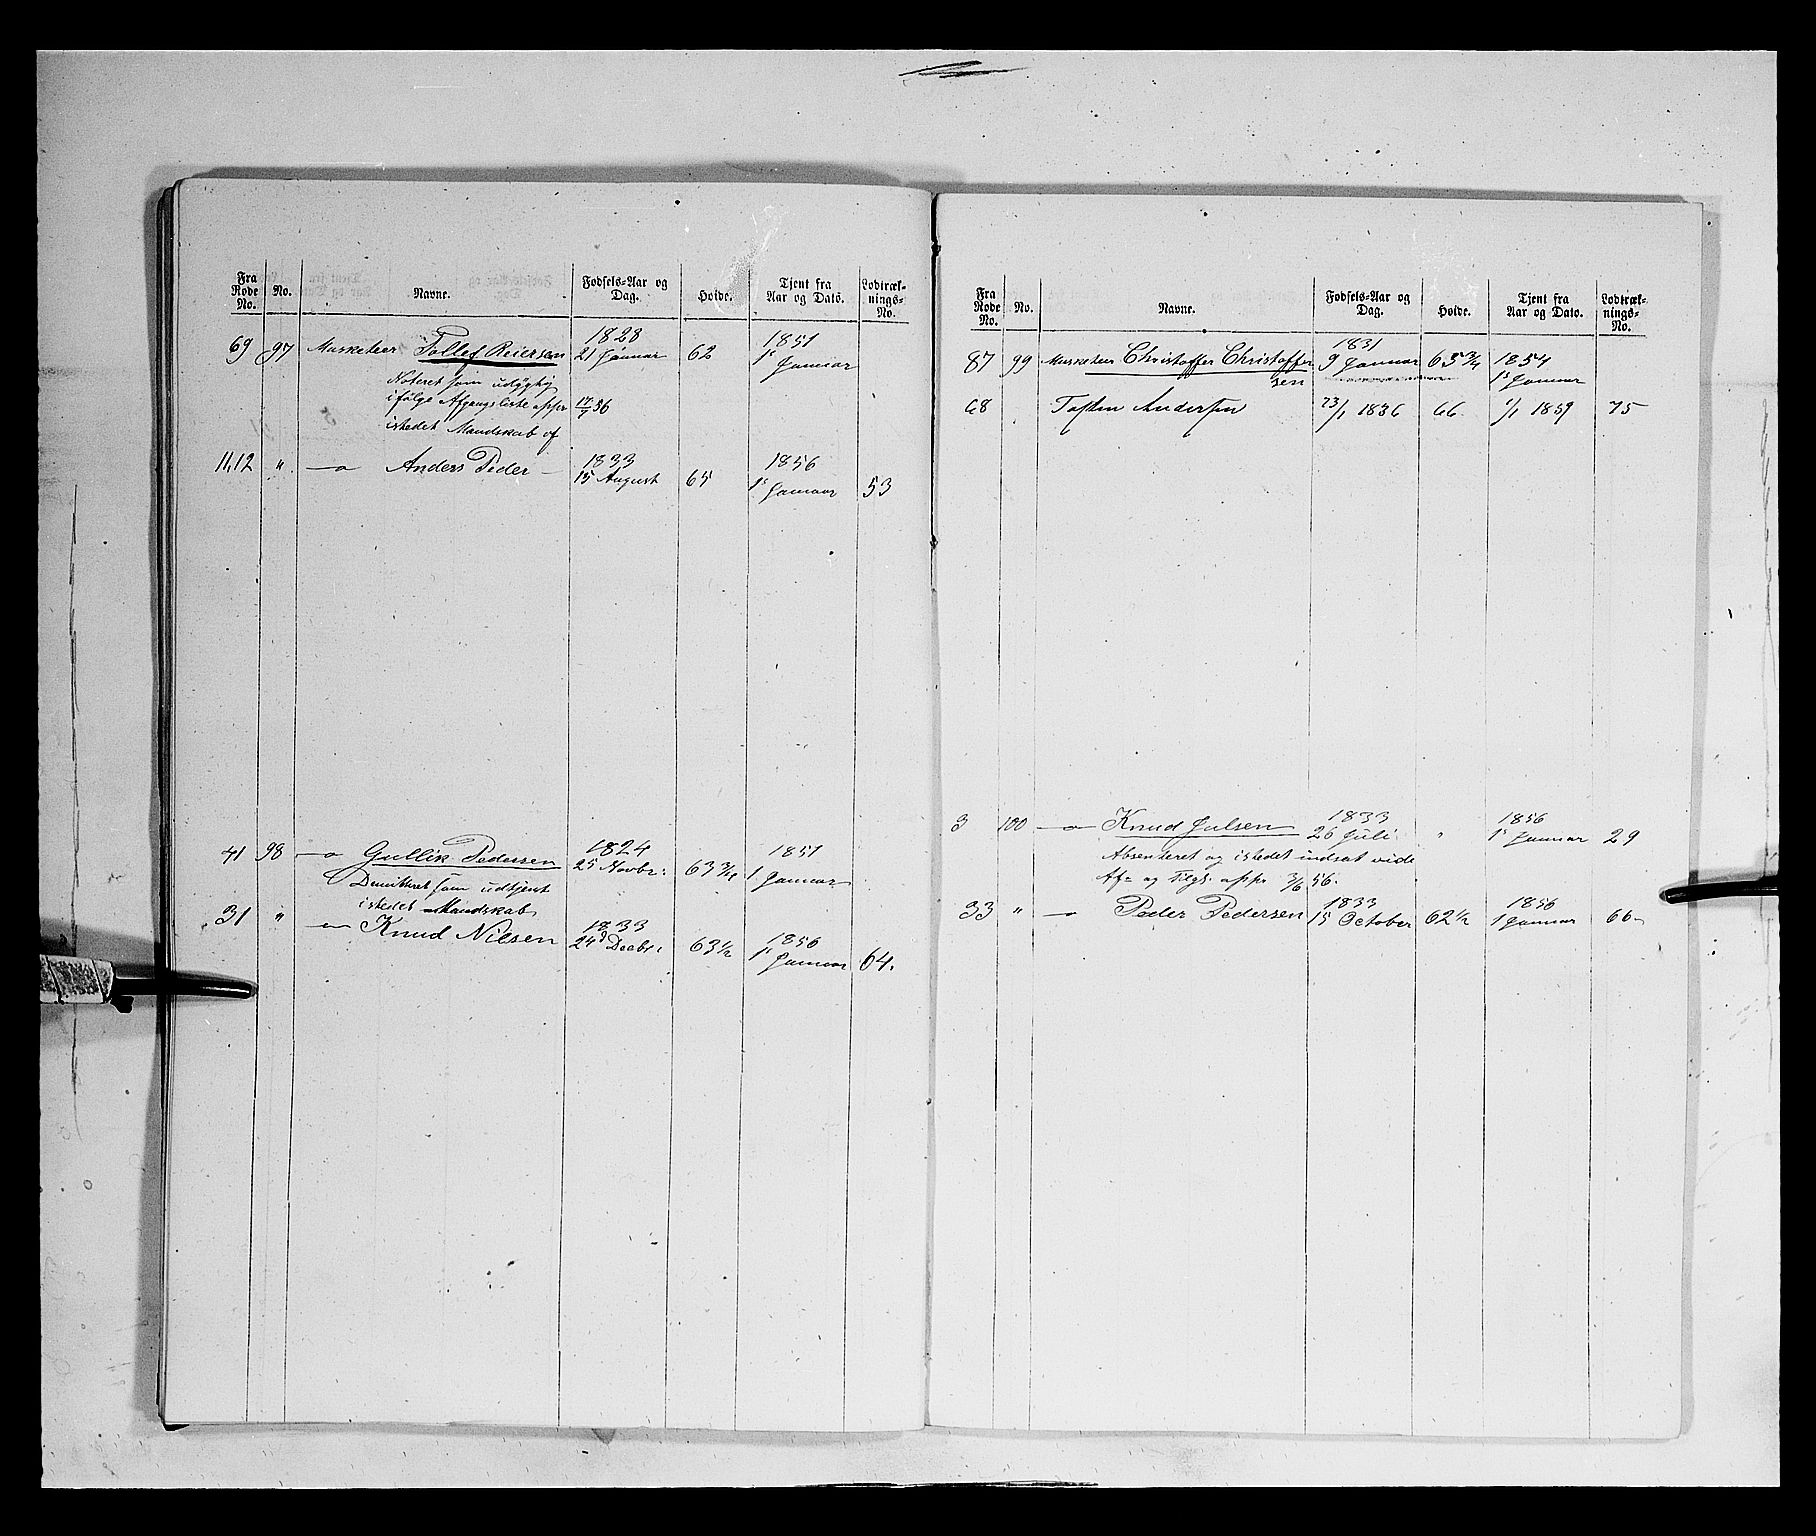 Fra Rode No. No. Navne. Fødsels-Aar og Dag. Høide. Tjent fra Aar og Dato. Lodtræknings-No.
69 97 Musketeer Tollef Reiersen 1828 21 Januar 62 1851 1s Januar
Noteret som udygtig
ifølge Afgangsliste appr 17/7 56
istedet Mandskab af
11,12 " —o Anders Peder — 1833 15 August 65 1856 1s Januar 53
41 98 —o Gullik Pedersen 1824 25 Novbr: 63 3/4 1851 1 Januar
Dimitteret som udtjent
istedet Mandskab
31 " —o— Knud Nilsen 1833 24d Decbr: 63 1/2 1856 1s Januar 64.
Fra Rode No. No. Navne. Fødsels-Aar og Dag. Høide. Tjent fra Aar og Dato. Lodtræknings-No.
87 99 Musketeer Christoffer Christoffer 1831 9 Januar 63 3/4 1854 1s Januar
sen
68 Tosten Andersen 23/1 1836 66. 1/1 1859 75
3 100 —o— Knud Julsen 1833 26 Juli " 1856 1s Januar 29
Absenteret og istedet indsat vide
Af= og Tilgs. appr 3/6 56.
33 " —o Peder Pedersen 1833 15 October 62 1/2 1856 1 Januar 66-